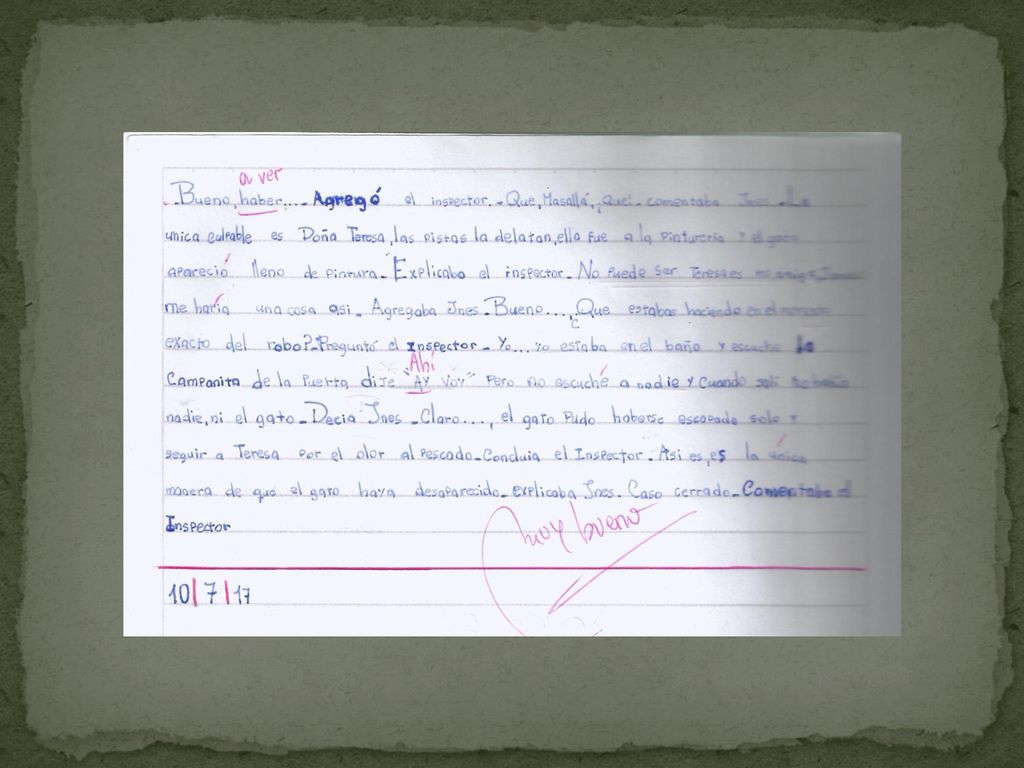 a ver
Bueno, haber.... - Agregó el inspector. - Que, Masallá, ¿que?. - comentaba Ines. - La
unica culpable es Doña Teresa, las pistas la delatan, ella fue a la pintureria y el gato
apareció lleno de pintura. - Explicaba el inspector. - No puede ser Teresa es mi amiga,
me haría una cosa asi. - Agregaba Ines. - Bueno...., ¿Que estabas haciendo en el momento
exacto del robo? - Preguntó el inspector - Yo... yo estaba en el baño y escuche la
Ahí
campanita de la puerta dije "AY voy" pero no escuché a nadie y cuando sali no había
nadie, ni el gato - Decia Ines - Claro...., el gato pudo haberse escapado solo y
seguir a Teresa por el olor al pescado - Concluia el Inspector. - Asi es, es la única
manera de que el gato haya desaparecido - explicaba Ines. Caso cerrado - Comentaba el
Inspector
Muy bueno
10/7/17